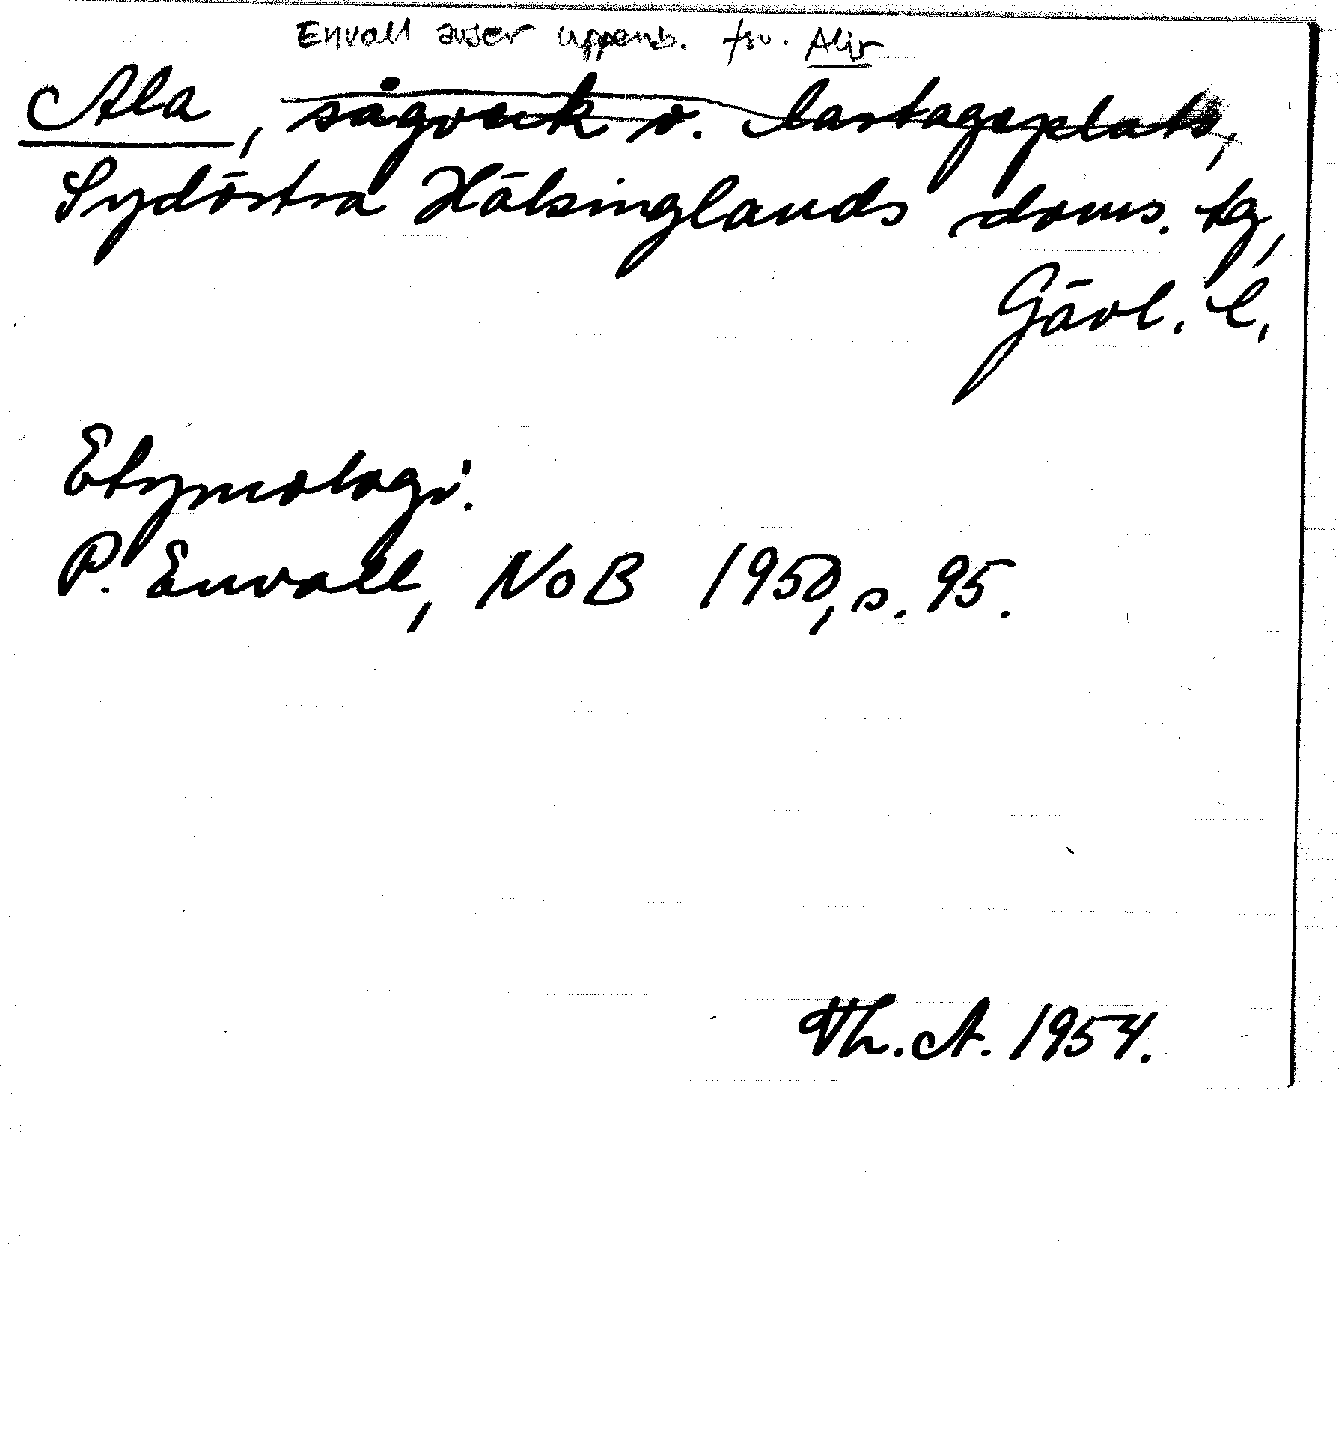 Envall avser uppenb. fsv. Alir
Ala, sågverk o. lastageplats,
Sydöstra Hälsinglands doms. tg,
Gävl. l.
Etymologi.
P. Envall, NoB 1950, s. 95.
Th. A. 1954.